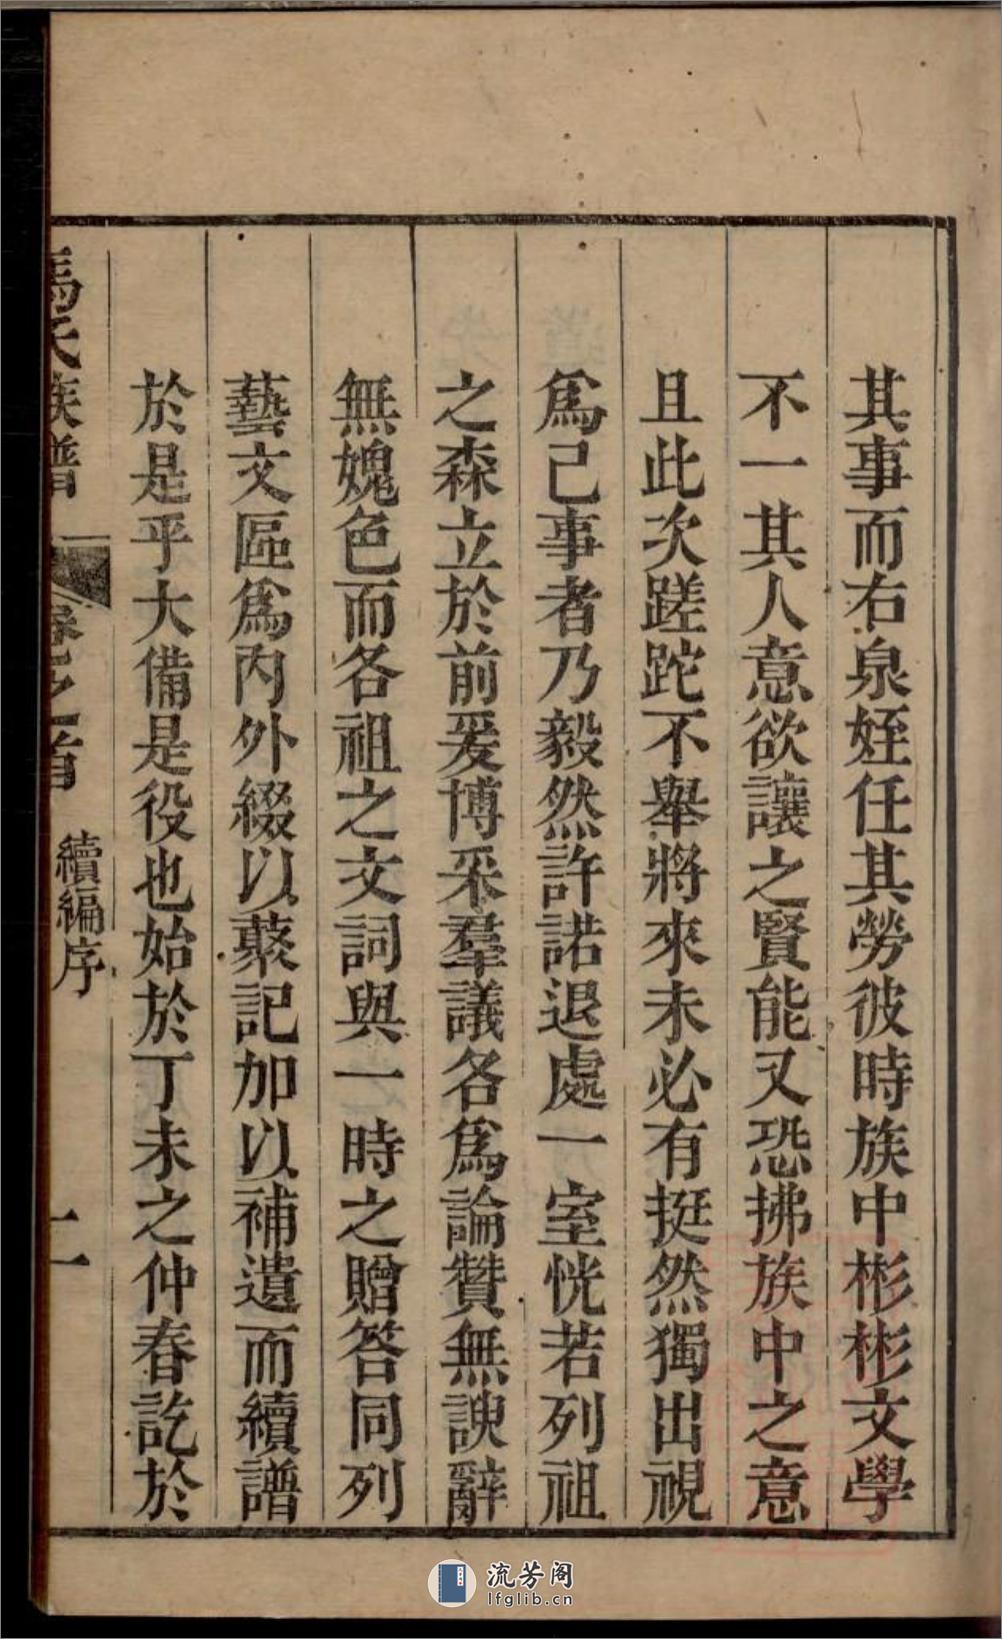 其事而右泉姪任其勞彼時族中彬彬文學
不一其人意欲讓之賢能又恐拂族中之意
且此次蹉跎不舉將來未必有挺然獨出視
爲己事者乃毅然許諾退處一室恍若列祖
之森立於前爰博采羣議各爲論贊無諛辭
無媿色而各祖之文詞與一時之贈答同列
藝文區爲內外綴以藂記加以補遺而續譜
於是乎大備是役也始於丁未之仲春訖於
馮氏族譜 卷之首 續編序 二
流芳阁
lfglib.cn